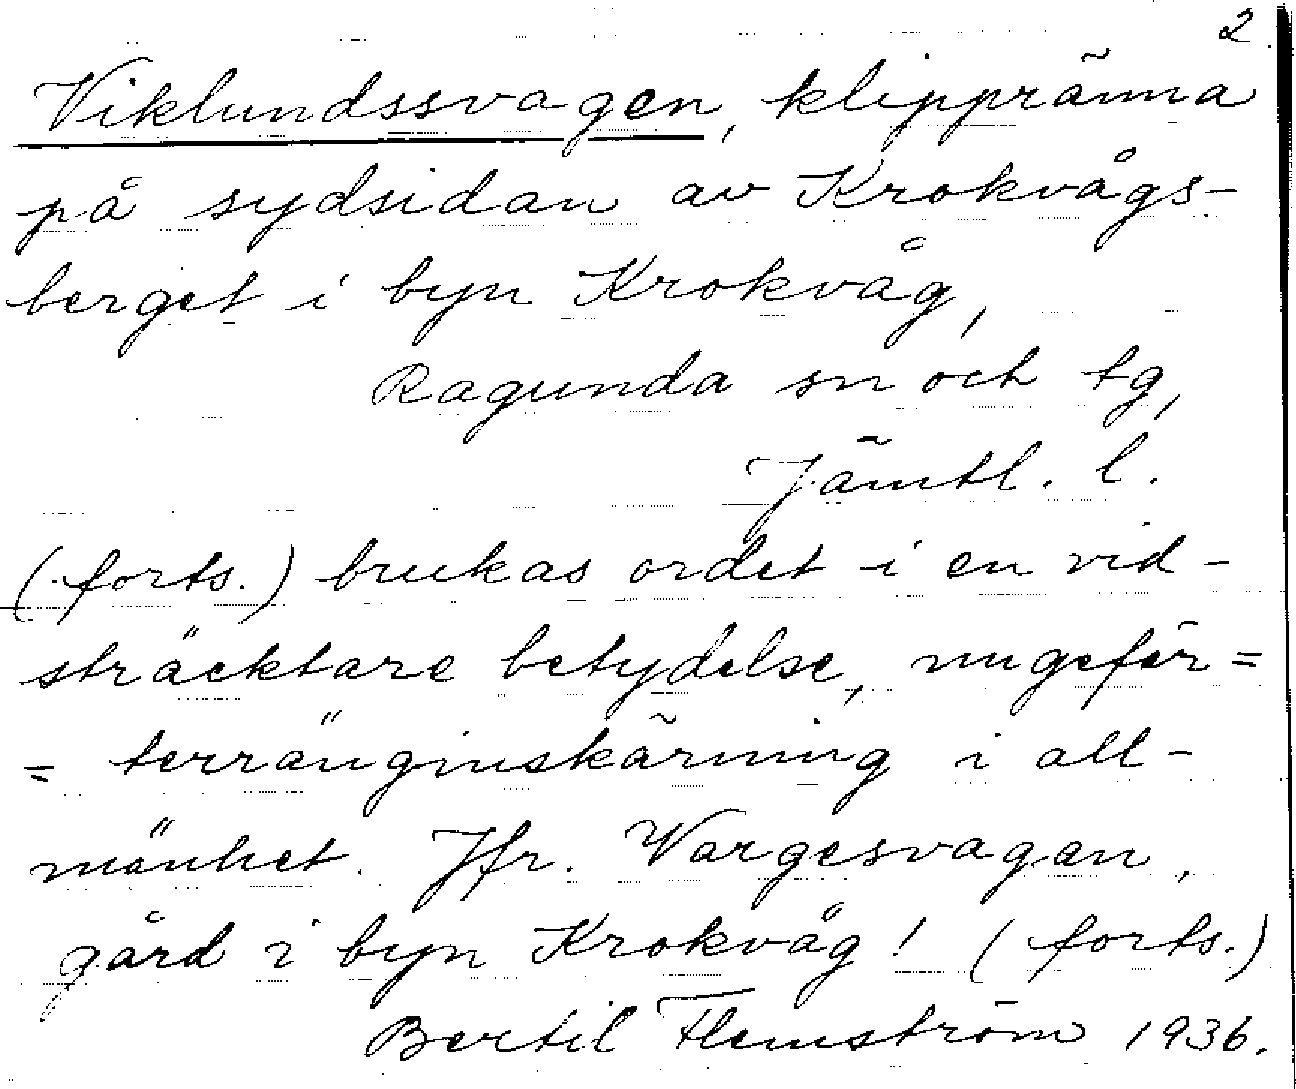 2.
Viklundssvagen, klippränna
på sydsidan av Krokvågs-
berget i byn Krokvåg,
Ragunda sn och tg,
Jämtl. l.
(forts.) brukas ordet i en vid-
sträcktare betydelse, ungefär =
= terränginskärning i all-
mänhet. Jfr. Vargesvagan,
gård i byn Krokvåg! (forts.)
Bertil Flemström 1936.